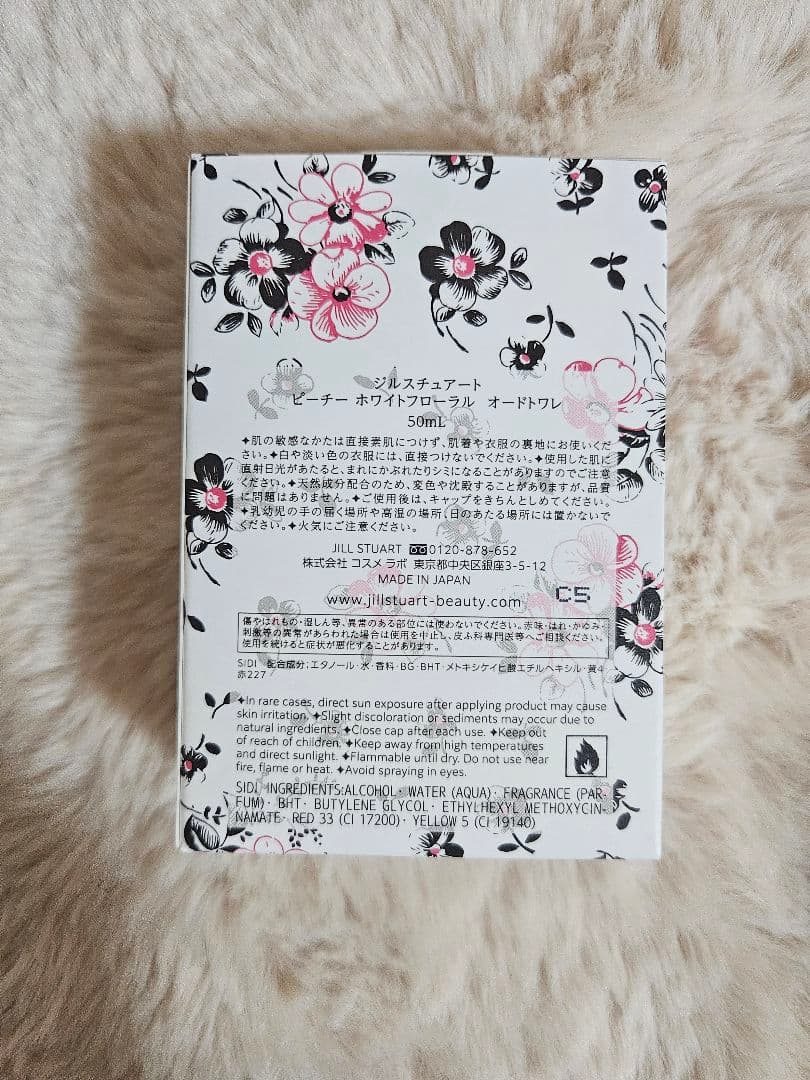 ジルスチュアート
ピーチー ホワイトフローラル オードトワレ
50mL
✦肌の敏感なかたは直接素肌につけず、肌着や衣服の裏地にお使いくだ
さい。✦白や淡い色の衣服には、直接つけないでください。✦使用した肌に
直射日光があたると、まれにかぶれたりシミになることがありますのでご注意
ください。✦天然成分配合のため、変色や沈殿することがありますが、品質
に問題はありません。✦ご使用後は、キャップをきちんとしめてください。
✦乳幼児の手の届く場所や高湿の場所、日のあたる場所には置かないで
ください。✦火気にご注意ください。
JILL STUART 0120-878-652
株式会社 コスメ ラボ 東京都中央区銀座3-5-12
MADE IN JAPAN
C5
www.jillstuart-beauty.com
傷やはれもの・湿しん等、異常のある部位には使わないでください。赤味・はれ・かゆみ・
刺激等の異常があらわれた場合は使用を中止し、皮ふ科専門医等へご相談ください。
使用を続けると症状が悪化することがあります。
SIDI 配合成分:エタノール・水・香料・BG・BHT・メトキシケイヒ酸エチルヘキシル・黄4・
赤227
✦In rare cases, direct sun exposure after applying product may cause
skin irritation. ✦Slight discoloration or sediments may occur due to
natural ingredients. ✦Close cap after each use. ✦Keep out
of reach of children. ✦Keep away from high temperatures
and direct sunlight. ✦Flammable until dry. Do not use near
fire, flame or heat. ✦Avoid spraying in eyes.
SIDI INGREDIENTS:ALCOHOL· WATER (AQUA)· FRAGRANCE (PAR-
FUM)· BHT· BUTYLENE GLYCOL· ETHYLHEXYL METHOXYCIN-
NAMATE· RED 33 (CI 17200)· YELLOW 5 (CI 19140)